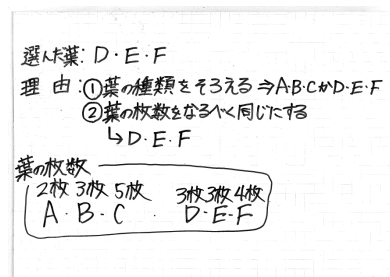 選んだ葉: D・E・F
理由:①葉の種類をそろえる⇒A・B・CかD・E・F
②葉の枚数をなるべく同じにする
↳D・E・F
葉の枚数
2枚 3枚 5枚 3枚 3枚 4枚
A・B・C・D・E・F